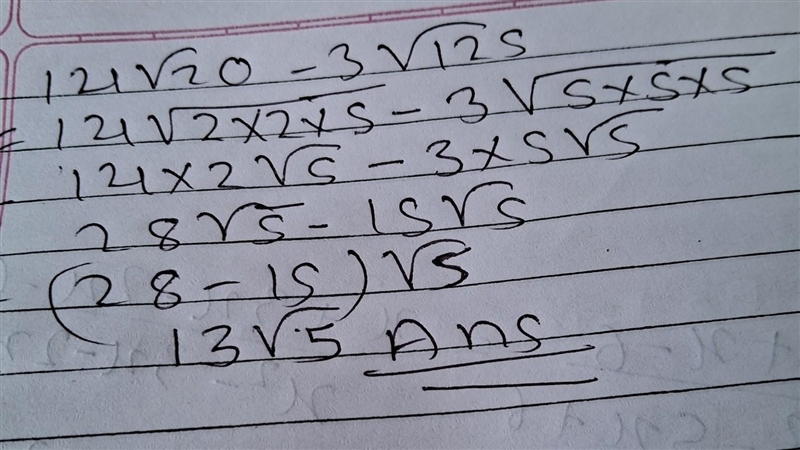 14√20 - 3√125
= 14√2×2×5 - 3√5×5×5
14×2√5 - 3×5√5
28√5 - 15√5
(28 - 15)√5
13√5 Ans